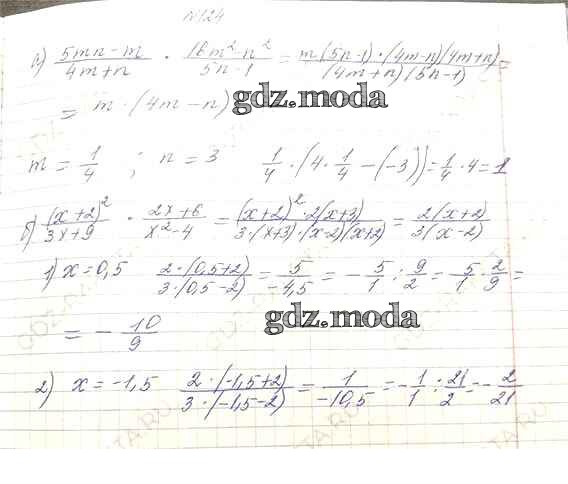 N 124
а) (5mn - m)/(4m + n) · (16m² - n²)/(5n - 1) = (m(5n-1)·(4m-n)(4m+n))/((4m+n)(5n-1)) =
= m·(4m - n) gdz.moda
m = 1/4 ; n = 3 1/4 · (4 · 1/4 - (-3)) = 1/4 · 4 = 1
б) (x+2)²/(3x+9) · (2x+6)/(x²-4) = ((x+2)²·2(x+3))/(3·(x+3)·(x-2)(x+2)) = 2(x+2)/3(x-2)
1) x = 0,5 2·(0,5+2)/3·(0,5-2) = 5/-4,5 = - 5/1 : 9/2 = - 5/1 · 2/9 =
= - 10/9 gdz.moda
2) x = -1,5 2·(-1,5+2)/3·(-1,5-2) = 1/-10,5 = - 1/1 : 21/2 = - 2/21